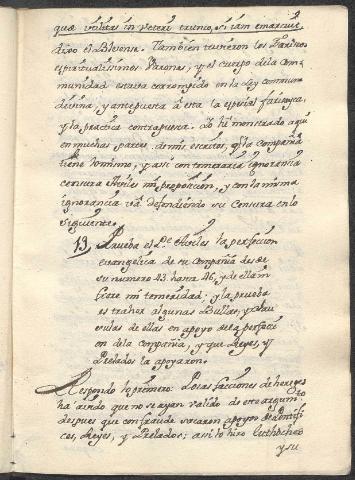 quæ utilitas in veteri trunco, si iam emarcuit
dixo el Blesense. Tambien tuvieron los Fariseos
espiritualissimos Varones, y el cuerpo de la com
munidad estava corrompido en la Ley commun
divina, y antepuesta â esta la espiritual farisayca,
y la practica contrapuesta. Io hê monstrado aqui
en muchas partes, de mis escritos, q̃ la compañia
tiene lo mismo, y assi con temeraria ignorancia
censura Aviles mi proposicion, y con la misma
ignorancia vâ defendiendo su censura en lo
siguiente.
13, Prueba el Pe. Aviles la perfeccion
evangelica de su compañia desde
su numero 43 hasta 46, y de ella in
fiere mi temeridad; y la prueba
es traher algunas Bullas, y clau
sulas de ellas en apoyo de la perfecci
on de la compañia, y que Reyes, y
Prelados la apoyaron.
Respondo lo primero: Pocas facciones de hereges
ha avido que no se ayan valido de este argumto
despues que con fraude sacaron apoyos de Pontifi
ces, Reyes, y Prelados; assi lo hizo
y su